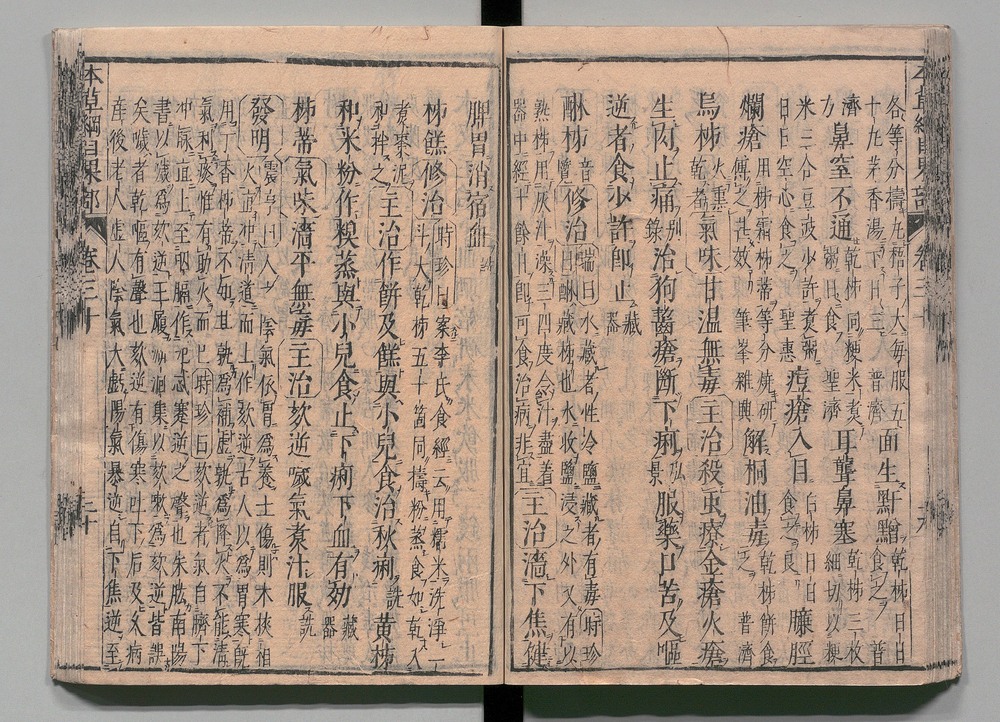 各等分擣丸梧子大每服五
十丸茅香湯下日三 普濟 面生䵟䵳 乾柹日日食之 普
濟 鼻窒不通 乾柹同粳米煮粥日食 聖濟 耳聾鼻塞 乾柹三枚細切以粳
米三合豆豉少許煮粥日日空心食之 聖惠 痘瘡入目 白柹日日食之良 臁脛
爛瘡 用柹霜柹蒂等分燒研傅之甚效 筆峯雜興 解桐油毒 乾柹餅食之 普濟
烏柹 火熏乾者 氣味甘温無毒 主治殺蟲療金瘡火瘡
生肉止痛 別錄 治狗齧瘡斷下痢 弘景 服藥口苦及嘔
逆者食少許即止 藏器
醂柹 音覽 修治 瑞曰水藏者性冷鹽藏者有毒 時珍曰醂藏柹也水收鹽浸之外又有以
熟柹用灰汁澡三四度令汁盡着器中經十餘日即可食治病非宜 主治濇下焦健
脾胃消宿血
柹餻修治 時珍曰案李氏食經云用糯米洗淨一斗大乾柹五十箇同擣粉蒸食如乾入
煮棗泥和拌之 主治作餅及餻與小兒食治秋痢 詵 黃柹
和米粉作糗蒸與小兒食止下痢下血有効 藏器
柹蒂氣味濇平無毒 主治欬逆噦氣煮汁服 詵
發明 震亨曰人之陰氣依胃爲養土傷則木挾相
火直冲清道而上作欬逆古人以爲胃寒既
用丁香柹蒂不知其孰爲補虛孰爲降火不能清
氣利痰惟有助火而已 時珍曰欬逆者氣自臍下
冲脉直上至咽膈作呃忒蹇逆之聲也朱肱南陽
書以噦爲欬逆王履溯洄集以欬嗽爲欬逆皆誤
矣噦者乾嘔有聲也欬逆有傷寒吐下后及久病
產後老人虛人陰氣大戲陽氣暴逆自下焦逆至
本草綱目果部 卷三十